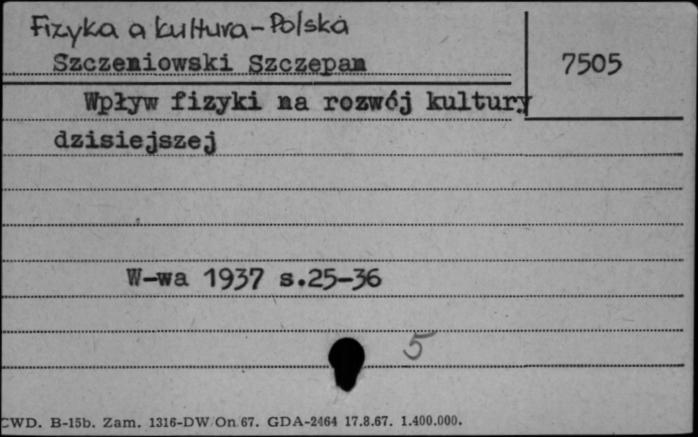 Fizyka a kultura - Polska
Szczeniowski Szczepan
7505
Wpływ fizyki na rozwój kultury
dzisiejszej
W-wa 1937 s.25-36
5
CWD. B-15b. Zam. 1316-DW/On/67. GDA-2464 17.8.67. 1.400.000.